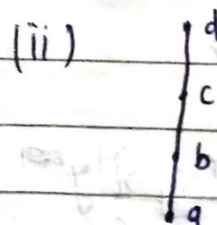 (ii)
d
c
b
a